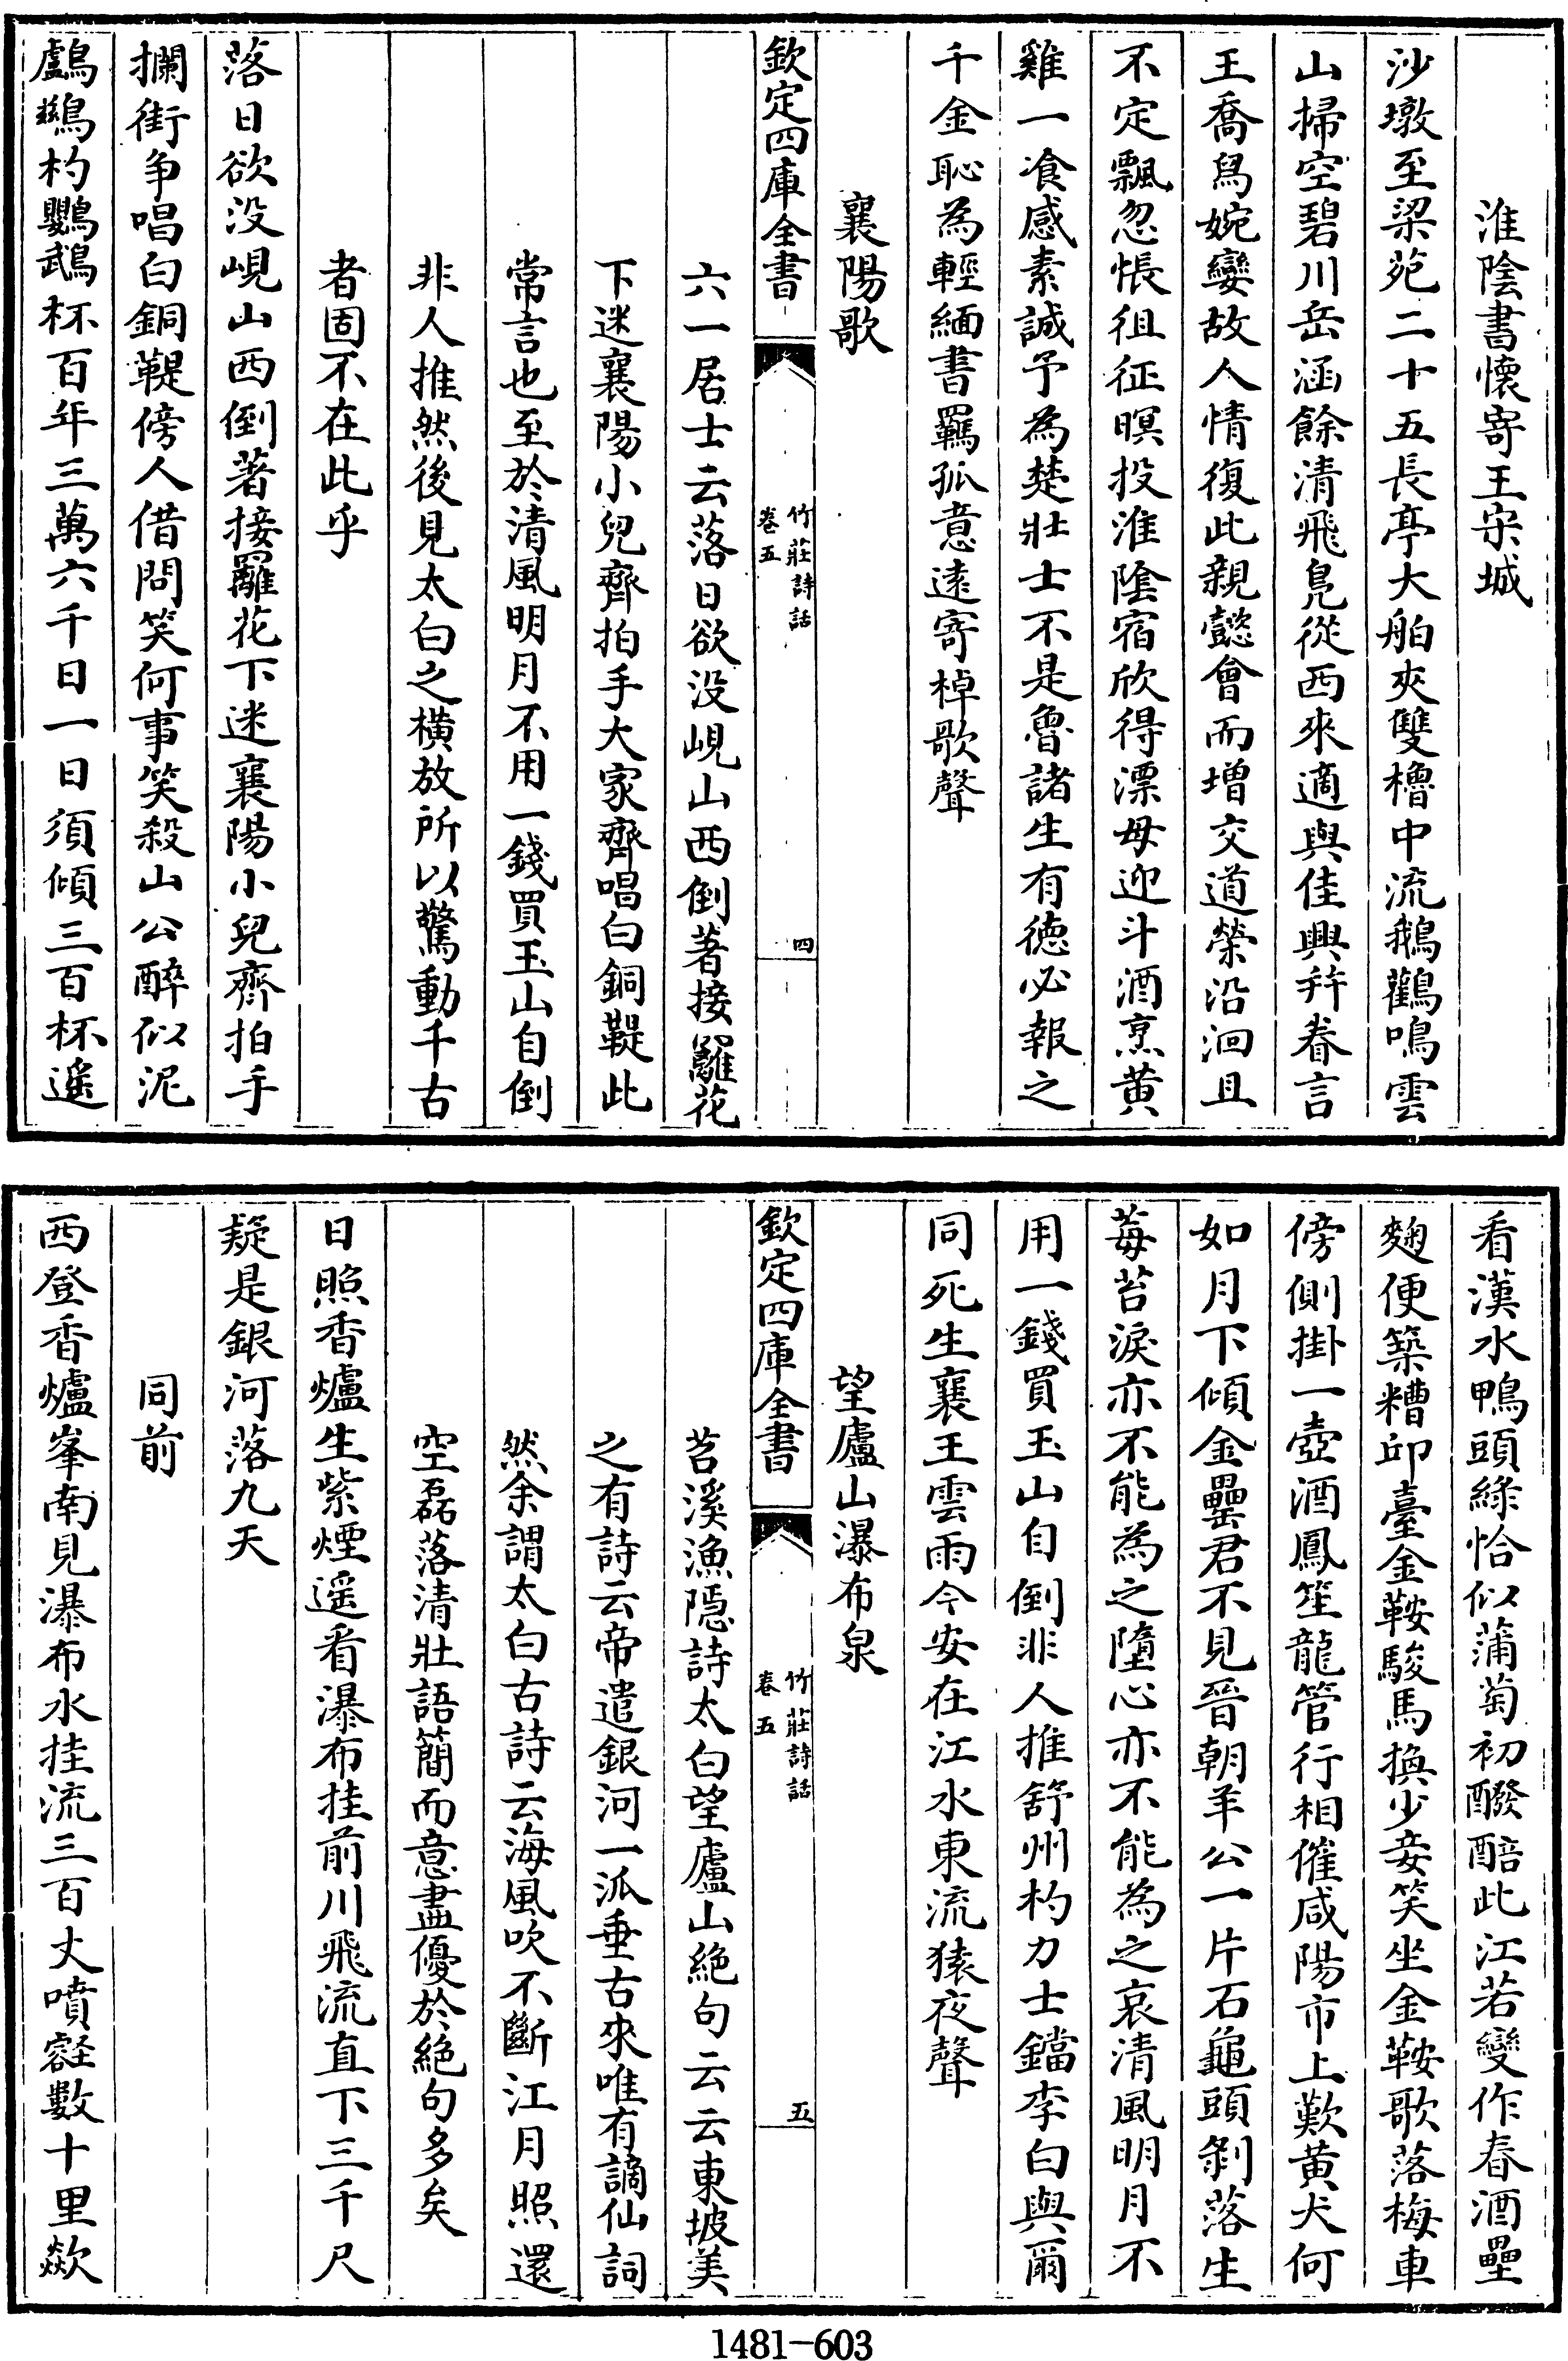 淮陰書懷寄王宋城
沙墩至梁苑二十五長亭大舶夾雙櫓中流鵝鸛鳴雲
山掃空碧川岳涵餘清飛鳬從西來適與佳興幷眷言
王喬舄婉孌故人情復此親懿會而增交道榮沿洄且
不定飄忽悵徂征暝投淮陰宿欣得漂母迎斗酒烹黄
雞一飡感素誠予為楚壯士不是魯諸生有德必報之
千金恥為輕緬書羈孤意遠寄棹歌聲
襄陽歌
欽定四庫全書
竹莊詩話
卷五
四
六一居士云落日欲没峴山西倒著接䍦花
下迷襄陽小兒齊拍手大家齊唱白銅鞮此
常言也至於清風明月不用一錢買玉山自倒
非人推然後見太白之横放所以驚動千古
者固不在此乎
落日欲没峴山西倒著接䍦花下迷襄陽小兒齊拍手
攔街争唱白銅鞮傍人借問笑何事笑殺山公醉似泥
鸕鷀杓鸚鵡杯百年三萬六千日一日須傾三百杯遥
看漢水鴨頭綠恰似蒲萄初醱醅此江若變作春酒壘
麴便築糟邱臺金鞍駿馬換少妾笑坐金鞍歌落梅車
傍側掛一壺酒鳳笙龍管行相催咸陽市上歎黄犬何
如月下傾金罍君不見晉朝羊公一片石龜頭剝落生
莓苔淚亦不能為之墮心亦不能為之哀清風明月不
用一錢買玉山自倒非人推舒州杓力士鐺李白與爾
同死生襄王雲雨今安在江水東流猿夜聲
望廬山瀑布泉
欽定四庫全書
竹莊詩話
卷五
五
苕溪漁隱詩太白望廬山絶句云云東坡美
之有詩云帝遣銀河一派垂古來唯有謫仙詞
然余謂太白古詩云海風吹不斷江月照還
空磊落清壯語簡而意盡優於絶句多矣
日照香爐生紫煙遥看瀑布挂前川飛流直下三千尺
疑是銀河落九天
同前
西登香爐峯南見瀑布水挂流三百丈噴壑數十里歘
1481-603